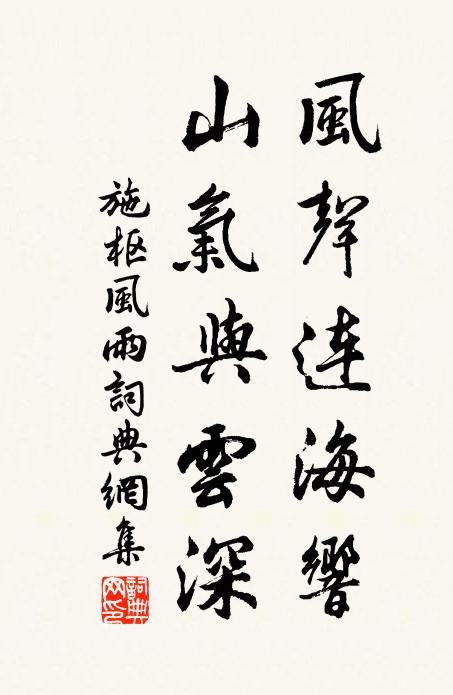 風聲連海響
山氣與雲深
施枢風雨詞典網集
詞典網印